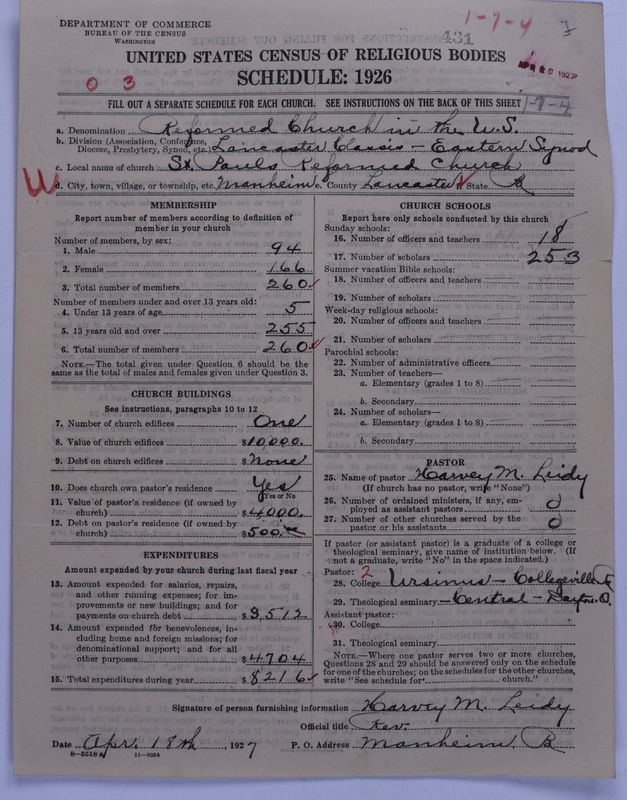 DEPARTMENT OF COMMERCE
BUREAU OF THE CENSUS
WASHINGTON
1-7-4
431
UNITED STATES CENSUS OF RELIGIOUS BODIES
APR 20 1927
SCHEDULE: 1926
0 3
FILL OUT A SEPARATE SCHEDULE FOR EACH CHURCH. SEE INSTRUCTIONS ON THE BACK OF THIS SHEET 1-7-4
a. Denomination Reformed Church in the U.S.
b. Division (Association, Conference,
Diocese, Presbytery, Synod, etc.) Lancaster Classis - Eastern Synod
c. Local name of church St. Pauls Reformed Church
d. City, town, village, or township, etc. Manheim e. County Lancaster State Pa
MEMBERSHIP
Report number of members according to definition of
member in your church
Number of members, by sex:
1. Male 94
2. Female 166
3. Total number of members 260
Number of members under and over 13 years old:
4. Under 13 years of age 5
5. 13 years old and over 255
6. Total number of members 260
NOTE.—The total given under Question 6 should be
the same as the total of males and females given under Question 3.
CHURCH BUILDINGS
See instructions, paragraphs 10 to 12
7. Number of church edifices One
8. Value of church edifices $10,000.
9. Debt on church edifices $ None
10. Does church own pastor's residence Yes
Yes or No
11. Value of pastor's residence (if owned by
church) $4,000.
12. Debt on pastor's residence (if owned by
church) $500.
EXPENDITURES
Amount expended by your church during last fiscal year
13. Amount expended for salaries, repairs,
and other running expenses; for im-
provements or new buildings; and for
payments on church debt $3,512
14. Amount expended for benevolences, in-
cluding home and foreign missions; for
denominational support; and for all
other purposes $4704
15. Total expenditures during year $8216
CHURCH SCHOOLS
Report here only schools conducted by this church
Sunday schools:
16. Number of officers and teachers 18
17. Number of scholars 253
Summer vacation Bible schools:
18. Number of officers and teachers
19. Number of scholars
Week-day religious schools:
20. Number of officers and teachers
21. Number of scholars
Parochial schools:
22. Number of administrative officers
23. Number of teachers—
a. Elementary (grades 1 to 8)
b. Secondary
24. Number of scholars—
a. Elementary (grades 1 to 8)
b. Secondary
PASTOR
25. Name of pastor Harvey M. Leidy
(If church has no pastor, write "None")
26. Number of ordained ministers, if any, em-
ployed as assistant pastors 0
27. Number of other churches served by the
pastor or his assistants 0
If pastor (or assistant pastor) is a graduate of a college or
theological seminary, give name of institution below. (If
not a graduate, write "No" in the space indicated.)
Pastor: 2
28. College Ursinus - Collegeville Pa
29. Theological seminary Central - Dayton, O.
Assistant pastor:
30. College
31. Theological seminary
NOTE.—Where one pastor serves two or more churches,
Questions 28 and 29 should be answered only on the schedule
for one of the churches; on the schedules for the other churches,
write "See schedule for church."
Signature of person furnishing information Harvey M. Leidy
Official title Rev.
Date Apr. 18th, 1927 P. O. Address Manheim, Pa
8-5518a 11-9064